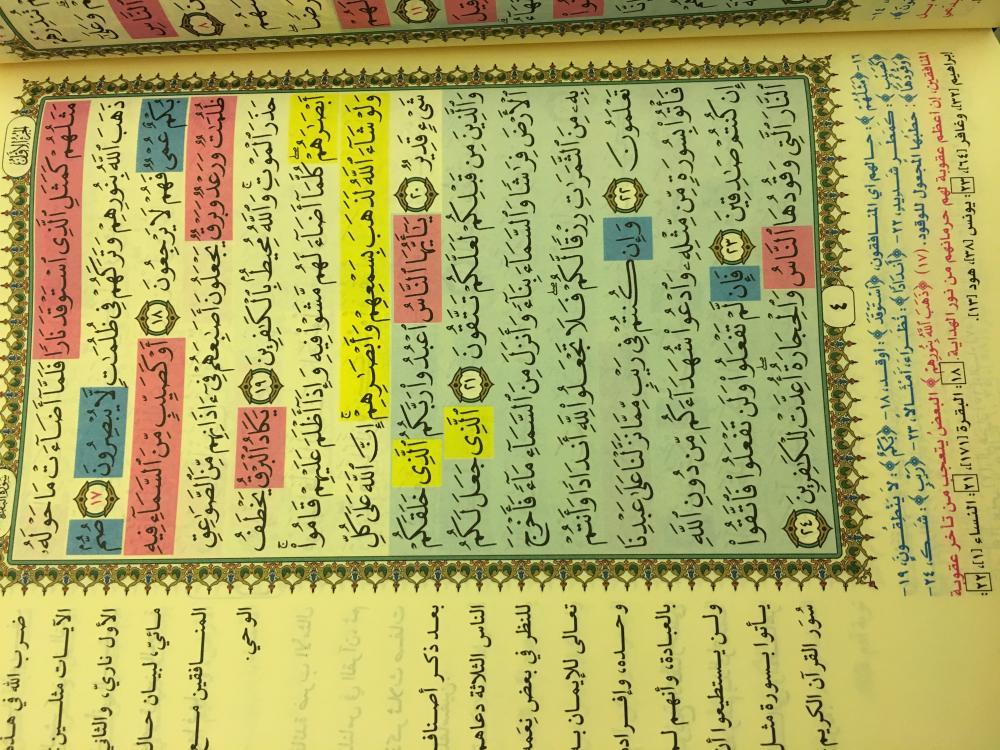 مَثَلُهُمْ كَمَثَلِ ٱلَّذِى ٱسْتَوْقَدَ نَارًا فَلَمَّآ أَضَآءَتْ مَا حَوْلَهُۥ
ذَهَبَ ٱللَّهُ بِنُورِهِمْ وَتَرَكَهُمْ فِى ظُلُمَٰتٍ لَّا يُبْصِرُونَ ١٧ صُمٌّۢ
بُكْمٌ عُمْىٌ فَهُمْ لَا يَرْجِعُونَ ١٨ أَوْ كَصَيِّبٍ مِّنَ ٱلسَّمَآءِ فِيهِ
ظُلُمَٰتٌ وَرَعْدٌ وَبَرْقٌ يَجْعَلُونَ أَصَٰبِعَهُمْ فِىٓ ءَاذَانِهِم مِّنَ ٱلصَّوَٰعِقِ
حَذَرَ ٱلْمَوْتِ وَٱللَّهُ مُحِيطٌۢ بِٱلْكَٰفِرِينَ ١٩ يَكَادُ ٱلْبَرْقُ يَخْطَفُ
أَبْصَٰرَهُمْ كُلَّمَآ أَضَآءَ لَهُم مَّشَوْا۟ فِيهِ وَإِذَآ أَظْلَمَ عَلَيْهِمْ قَامُوا۟
وَلَوْ شَآءَ ٱللَّهُ لَذَهَبَ بِسَمْعِهِمْ وَأَبْصَٰرِهِمْ إِنَّ ٱللَّهَ عَلَىٰ كُلِّ
شَىْءٍ قَدِيرٌ ٢٠ يَٰٓأَيُّهَا ٱلنَّاسُ ٱعْبُدُوا۟ رَبَّكُمُ ٱلَّذِى خَلَقَكُمْ
وَٱلَّذِينَ مِن قَبْلِكُمْ لَعَلَّكُمْ تَتَّقُونَ ٢١ ٱلَّذِى جَعَلَ لَكُمُ
ٱلْأَرْضَ فِرَٰشًا وَٱلسَّمَآءَ بِنَآءً وَأَنزَلَ مِنَ ٱلسَّمَآءِ مَآءً فَأَخْرَجَ
بِهِۦ مِنَ ٱلثَّمَرَٰتِ رِزْقًا لَّكُمْ فَلَا تَجْعَلُوا۟ لِلَّهِ أَندَادًا وَأَنتُمْ
تَعْلَمُونَ ٢٢ وَإِن كُنتُمْ فِى رَيْبٍ مِّمَّا نَزَّلْنَا عَلَىٰ عَبْدِنَا
فَأْتُوا۟ بِسُورَةٍ مِّن مِّثْلِهِۦ وَٱدْعُوا۟ شُهَدَآءَكُم مِّن دُونِ ٱللَّهِ
إِن كُنتُمْ صَٰدِقِينَ ٢٣ فَإِن لَّمْ تَفْعَلُوا۟ وَلَن تَفْعَلُوا۟ فَٱتَّقُوا۟
ٱلنَّارَ ٱلَّتِى وَقُودُهَا ٱلنَّاسُ وَٱلْحِجَارَةُ أُعِدَّتْ لِلْكَٰفِرِينَ ٢٤
٤
ضرب الله في هذه
الآيات مثلين:
الأول ناريّ، والثاني
مائيّ، لبيان حال
المنافقين مع
الوحي.
بعد ذكر أصناف
الناس الثلاثة دعاهم
للنظر في بعض نعمه
تعالى للإيمان به
وحده، وإفراده
بالعبادة، وأنهم لم
ولن يستطيعوا أن
يأتوا بسورة مثل
سُوَر القرآن الكريم
١٧- ﴿مَثَلُهُمْ﴾: حالهم أي المنافقون، ﴿ٱسْتَوْقَدَ﴾: أوقد، ١٨- ﴿بُكْمٌ﴾: لا ينطقون، ١٩-
﴿كَصَيِّبٍ﴾: كمطر شديد، ٢٢- ﴿أَندَادًا﴾: نظراء، أمثالا، ٢٣- ﴿رَيْبٍ﴾: شك، ٢٤-
﴿وَقُودُهَا﴾: حطبها المجعول للوقود. (١٧) ﴿ذَهَبَ ٱللَّهُ بِنُورِهِمْ﴾ البعض يتعجب من تأخر عقوبة
المنافقين: إن أعظم عقوبة لهم حرمانهم من نور الهداية. ١٨: البقرة [١٧١]، ٢١: النساء [١]، ٢٢:
إبراهيم [٣٢]، وغافر [٦٤]، ٢٣: يونس [٣٨]، هود [١٣].